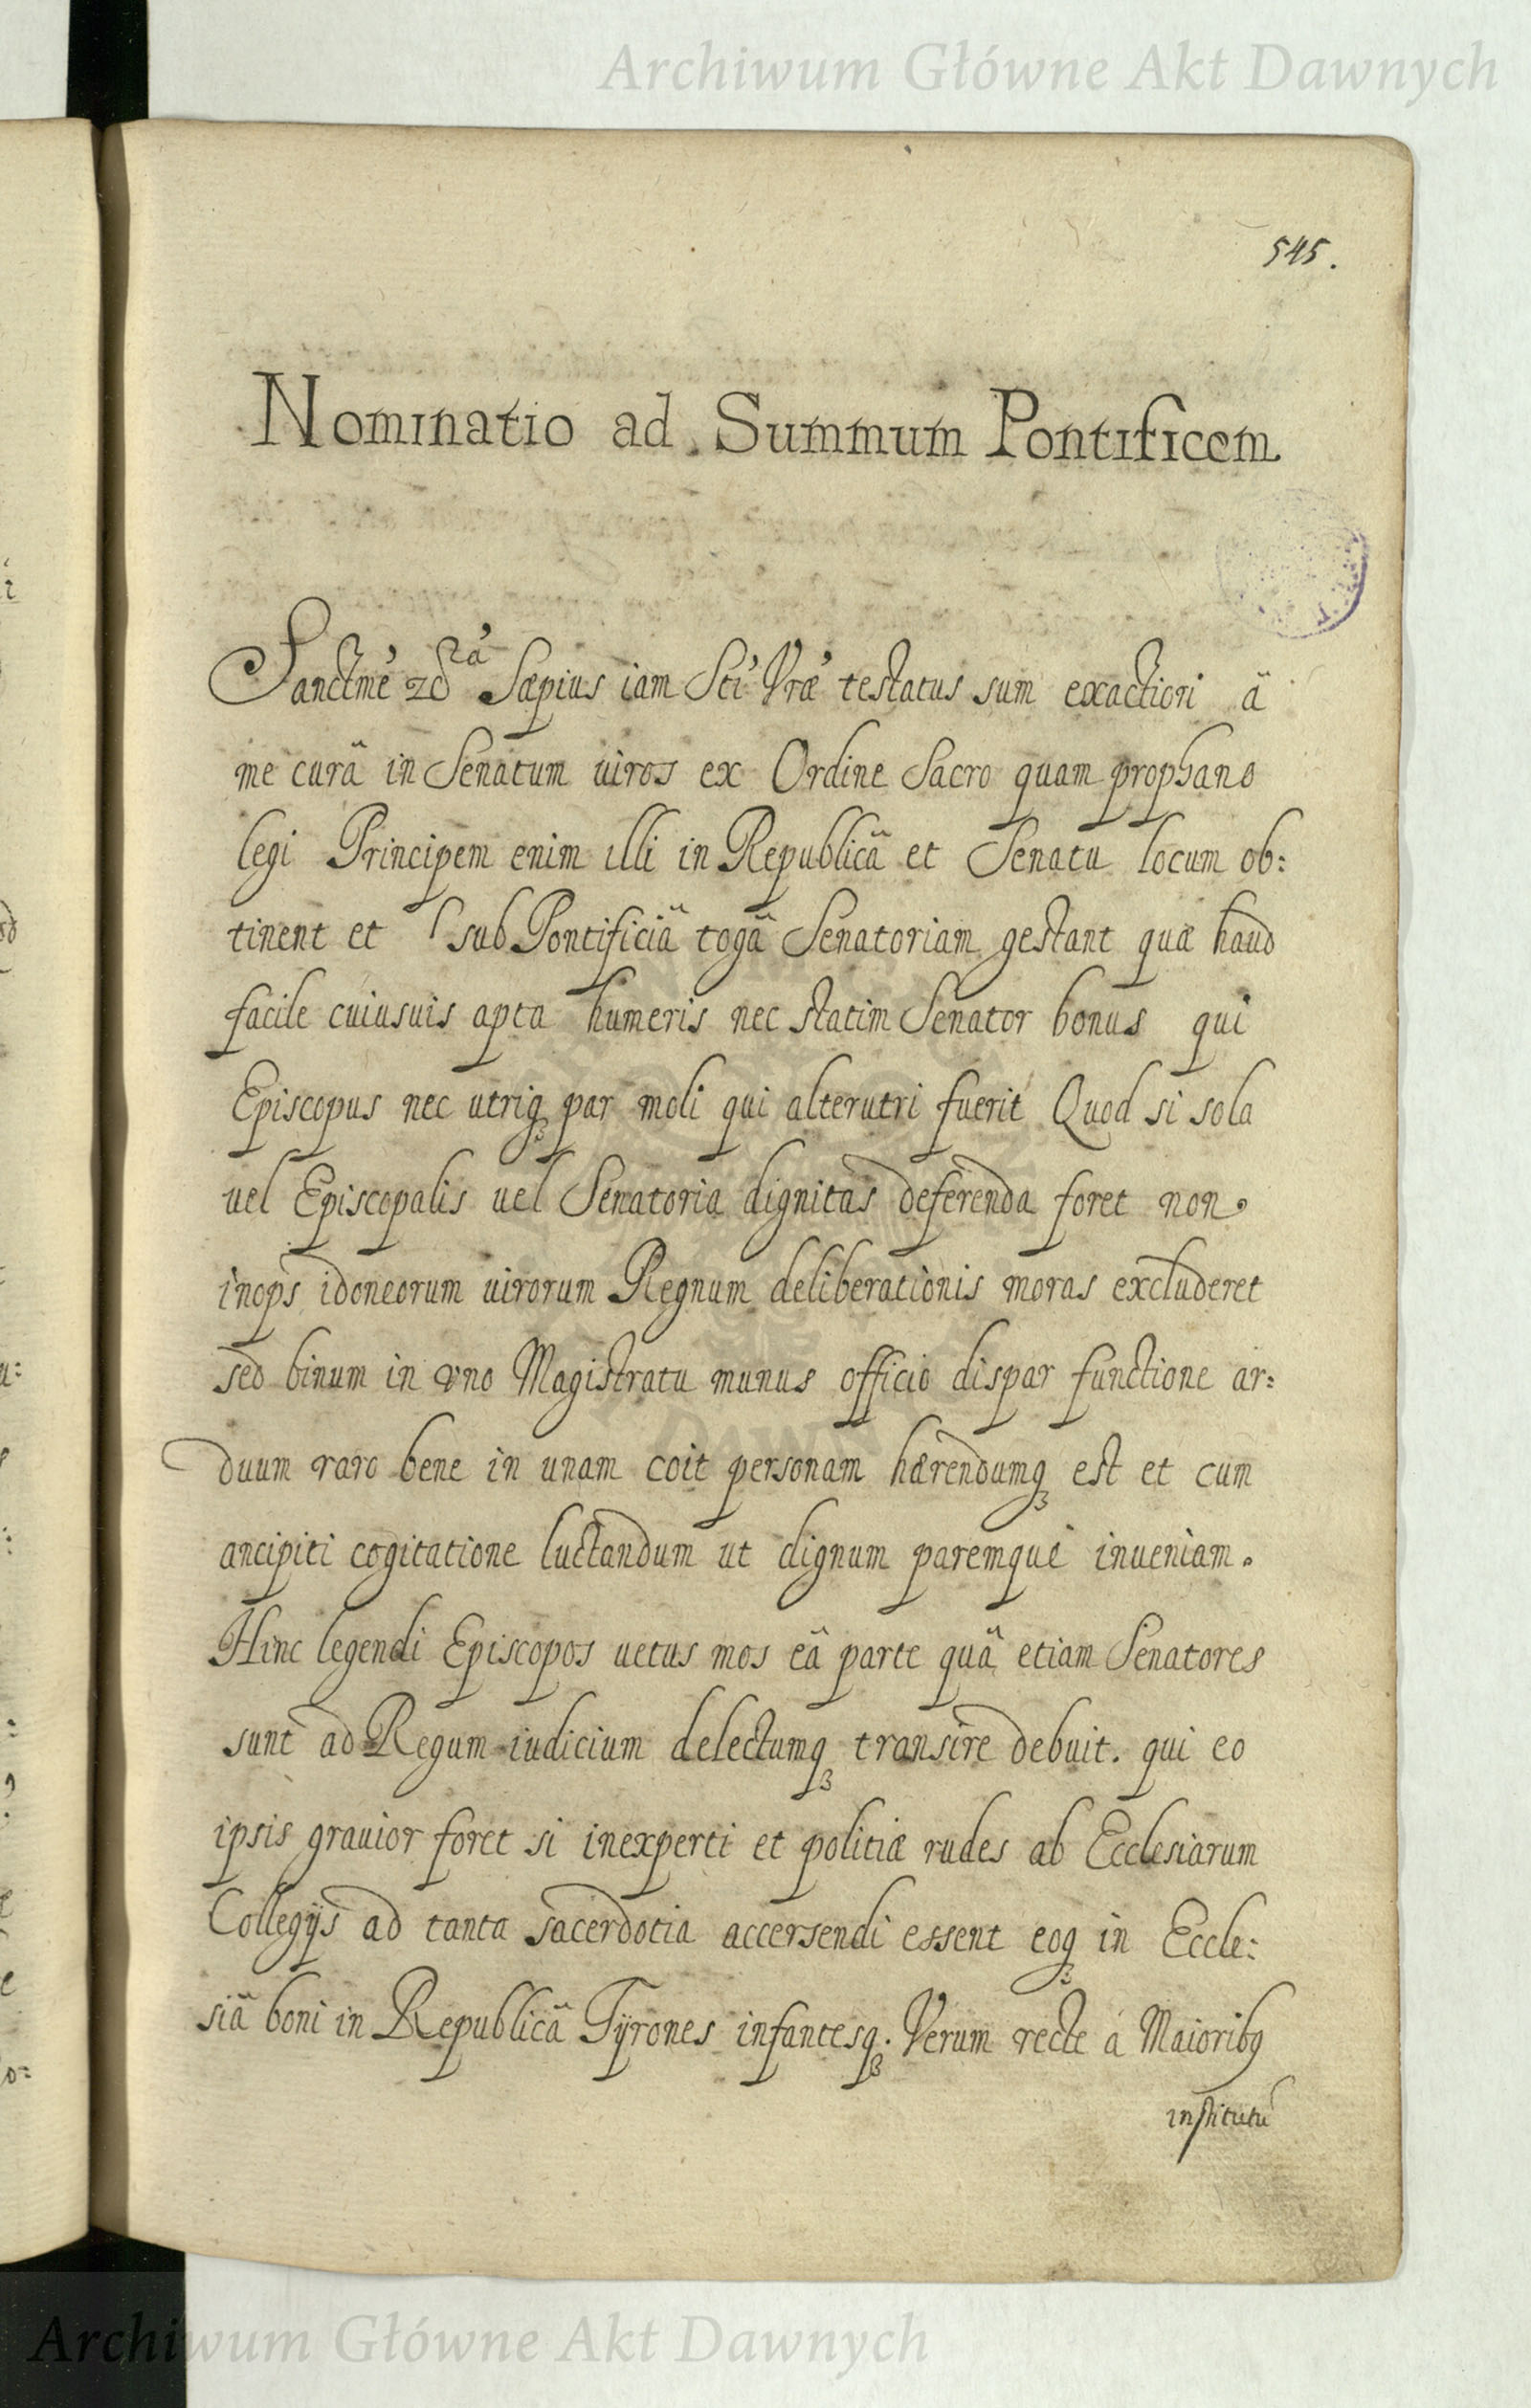 Archiwum Główne Akt Dawnych
545.
Nominatio ad Summum Pontificem
Sanctme' Sæpius iam Sti' Vræ' testatus sum exactiori â
me curâ in Senatum uiros ex Ordine Sacro quam prophano
legi Principem enim illi in Republicâ et Senatu locum ob:
tinent et sub Pontificiâ togâ Senatoriam gestant quæ haud
facile cuiusuis apta humeris nec statim Senator bonus qui
Episcopus nec utriqꝫ par moli qui alterutri fuerit Quod si sola
uel Episcopalis uel Senatoria dignitas deferenda foret non
inops idoneorum uirorum Regnum deliberationis moras excluderet
sed binum in vno Magistratu munus officio dispar functione ar:
duum raro bene in unam coit personam hærendumqꝫ est et cum
ancipiti cogitatione luctandum ut dignum paremque inueniam.
Hinc legendi Episcopos uetus mos eâ parte quâ etiam Senatores
sunt ad Regum iudicium delectumqꝫ transire debuit. qui eo
ipsis grauior foret si inexperti et politiæ rudes ab Ecclesiarum
Collegijs ad tanta sacerdotia accersendi essent eoqꝫ in Eccle:
siâ boni in Republicâ Tÿrones infantesqꝫ. Verum recte a Maioribꝰ
institutũ
Archiwum Główne Akt Dawnych